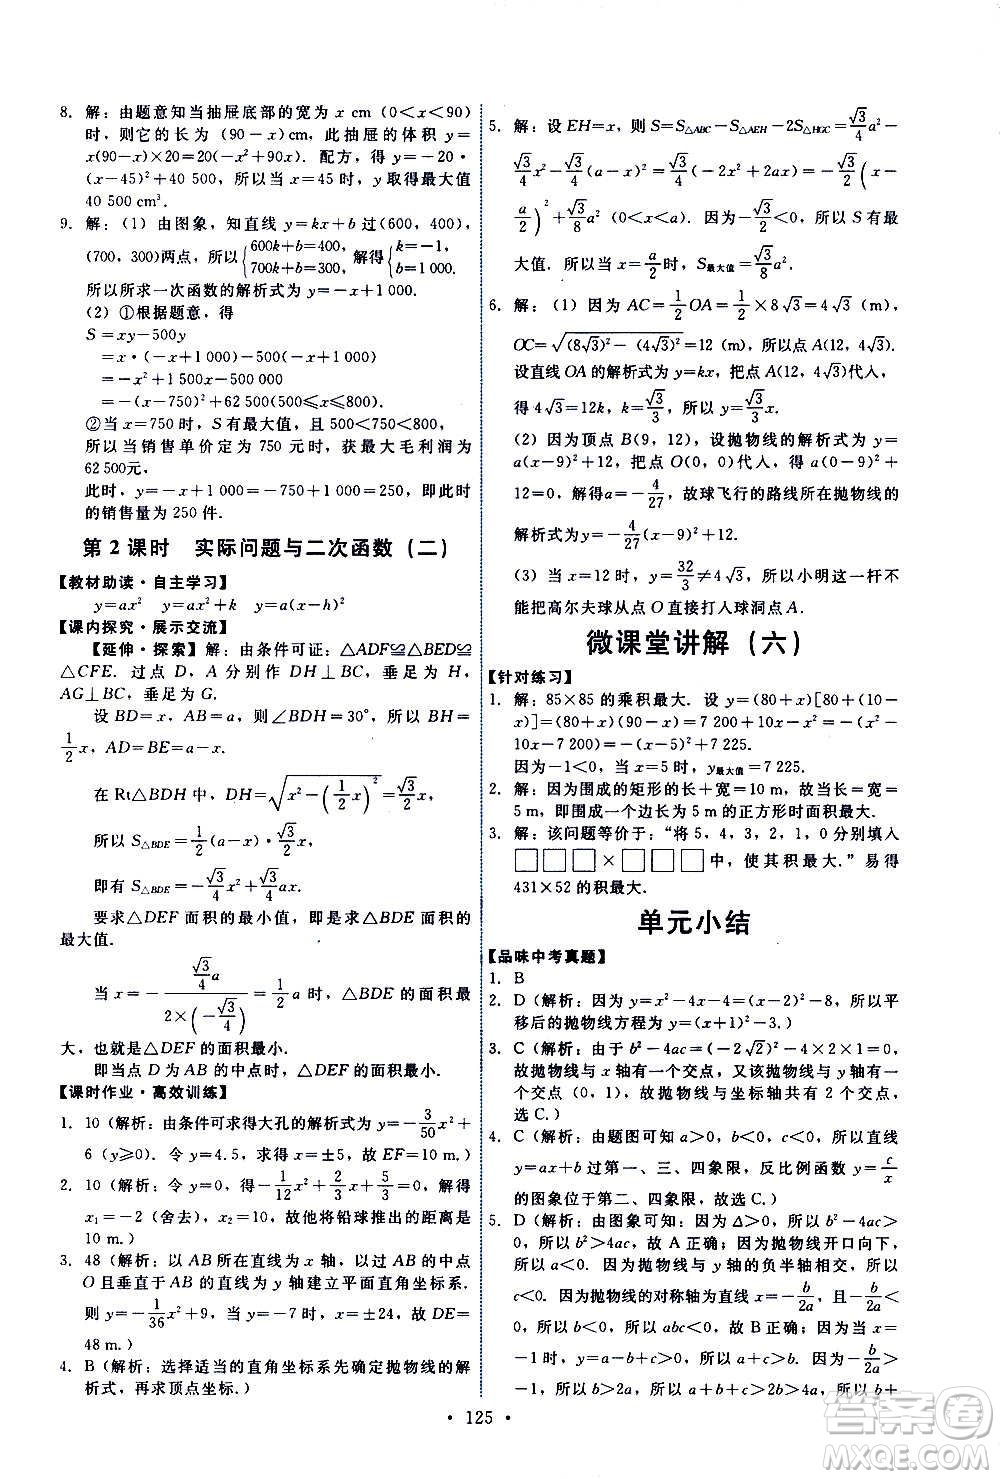 8. 解：由题意知当抽屉底部的宽为 x cm (0＜x＜90)
时，则它的长为 (90－x)cm，此抽屉的体积 y＝
x(90－x)×20＝20(－x²＋90x). 配方，得 y＝－20·
(x－45)²＋40 500，所以当 x＝45 时，y 取得最大值
40 500 cm³.
9. 解：(1) 由图象，知直线 y＝kx＋b 过(600，400)，
(700，300)两点，所以{600k＋b＝400, 700k＋b＝300, 解得{k＝－1, b＝1 000.
所以所求一次函数的解析式为 y＝－x＋1 000.
(2) ①根据题意，得
S＝xy－500y
＝x·(－x＋1 000)－500(－x＋1 000)
＝－x²＋1 500x－500 000
＝－(x－750)²＋62 500(500≤x≤800).
②当 x＝750 时，S 有最大值，且 500＜750＜800，
所以当销售单价定为 750 元时，获最大毛利润为
62 500元，
此时，y＝－x＋1 000＝－750＋1 000＝250，即此时
的销售量为 250 件.
第 2 课时 实际问题与二次函数（二）
【教材助读·自主学习】
y＝ax² y＝ax²＋k y＝a(x－h)²
【课内探究·展示交流】
【延伸·探索】解：由条件可证：△ADF≌△BED≌
△CFE. 过点 D，A 分别作 DH⊥BH，垂足为 H，
AG⊥BH，垂足为 G.
设 BD＝x，AB＝a，则∠BDH＝30°，所以 BH＝
1/2 x，AD＝BE＝a－x.
在 Rt△BDH 中，DH＝√(x²－(1/2 x)²)＝√3/2 x，
所以 S△BDE＝1/2 (a－x)·√3/2 x，
即有 S△BDE＝－√3/4 x²＋√3/4 ax.
要求△DEF 面积的最小值，即是求△BDE 面积的
最大值.
当 x＝－ (√3/4 a)/(2×(－√3/4)) ＝1/2 a 时，△BDE 的面积最
大，也就是△DEF 的面积最小.
即当点 D 为 AB 的中点时，△DEF 的面积最小.
【课时作业·高效训练】
1. 10 (解析：由条件可求得大孔的解析式为 y＝－3/50 x²＋
6 (y≥0). 令 y＝4.5，求得 x＝±5，故 EF＝10 m.)
2. 10 (解析：令 y＝0，得－1/12 x²＋2/3 x＋5/3＝0，解得
x₁＝－2 (舍去)，x₂＝10，故他将铅球推出的距离是
10 m.)
3. 48 (解析：以 AB 所在直线为 x 轴，以过 AB 的中点
O 且垂直于 AB 的直线为 y 轴建立平面直角坐标系.
则 y＝－1/36 x²＋9，当 y＝－7 时，x＝±24，故 DE＝
48 m.)
4. B (解析：选择适当的直角坐标系先确定抛物线的解
析式，再求顶点坐标.)
5. 解：设 EH＝x，则 S＝S△ABC－S△AEH－2S△HGC＝√3/4 a²－
√3/4 x²－√3/4 (a－x)²＝√3/4 (－2x²＋2ax)＝－√3/2 (x－
a/2)²＋√3/8 a² (0＜x＜a). 因为－√3/2＜0，所以 S 有最
大值. 所以当 x＝a/2 时，S最大值＝√3/8 a².
6. 解：(1) 因为 AC＝1/2 OA＝1/2×8√3＝4√3 (m)，
OC＝√((8√3)²－(4√3)²)＝12 (m)，所以点 A(12，4√3).
设直线 OA 的解析式为 y＝kx，把点 A(12，4√3)代入，
得 4√3＝12k，k＝√3/3，所以 y＝√3/3 x.
(2) 因为顶点 B(9，12)，设抛物线的解析式为 y＝
a(x－9)²＋12，把点 O(0，0)代入，得 a(0－9)²＋
12＝0，解得a＝－4/27，故球飞行的路线所在抛物线的
解析式为 y＝－4/27 (x－9)²＋12.
(3) 当 x＝12 时，y＝32/3≠4√3，所以小明这一杆不
能把高尔夫球从点 O 直接打入球洞点 A.
微课堂讲解（六）
【针对练习】
1. 解：85×85 的乘积最大. 设 y＝(80＋x)[80＋(10－
x)]＝(80＋x)(90－x)＝7 200＋10x－x²＝－(x²－
10x－7 200)＝－(x－5)²＋7 225.
因为－1＜0，所以当 x＝5 时，y最大值＝7 225.
2. 解：因为围成的矩形的长＋宽＝10 m，故当长＝宽＝
5 m，即围成一个边长为 5 m 的正方形时面积最大.
3. 解：该问题等价于：“将 5，4，3，2，1，0 分别填入
□□□×□□□中，使其积最大.”易得
431×52 的积最大.
单元小结
【品味中考真题】
1. B
2. D (解析：因为 y＝x²－4x－4＝(x－2)²－8，所以平
移后的抛物线方程为 y＝(x＋1)²－3.)
3. C (解析：由于 b²－4ac＝(－2√2)²－4×1×2＝0，
故抛物线与 x 轴有一个交点，又该抛物线与 y 轴有一
个交点 (0，1)，故抛物线与坐标轴共有 2 个交点，
选 C.)
4. C (解析：由题图可知 a＞0，b＜0，c＜0，所以直线
y＝ax＋b 过第一、三、四象限，反比例函数 y＝c/x
的图象位于第二、四象限，故选 C.)
5. D (解析：由图象可知：因为 Δ＞0，所以 b²－4ac＞
0，所以 b²＞4ac，故 A 正确；因为抛物线开口向下，
所以 a＜0. 因为抛物线与 y 轴的负半轴相交，所以
c＜0. 因为抛物线的对称轴为直线 x＝－b/2a，且－b/2a＜
0，所以 b＜0，所以 abc＜0，故 B 正确；当 x＝
－1 时，y＞0，所以 a－b＋c＞0，故 C 正确；因为－b/2a＞
－1，所以 b＞2a，所以 a＋b＋c＞3a＋c，所以 b＋
· 125 ·
答案圈
MXQE.COM